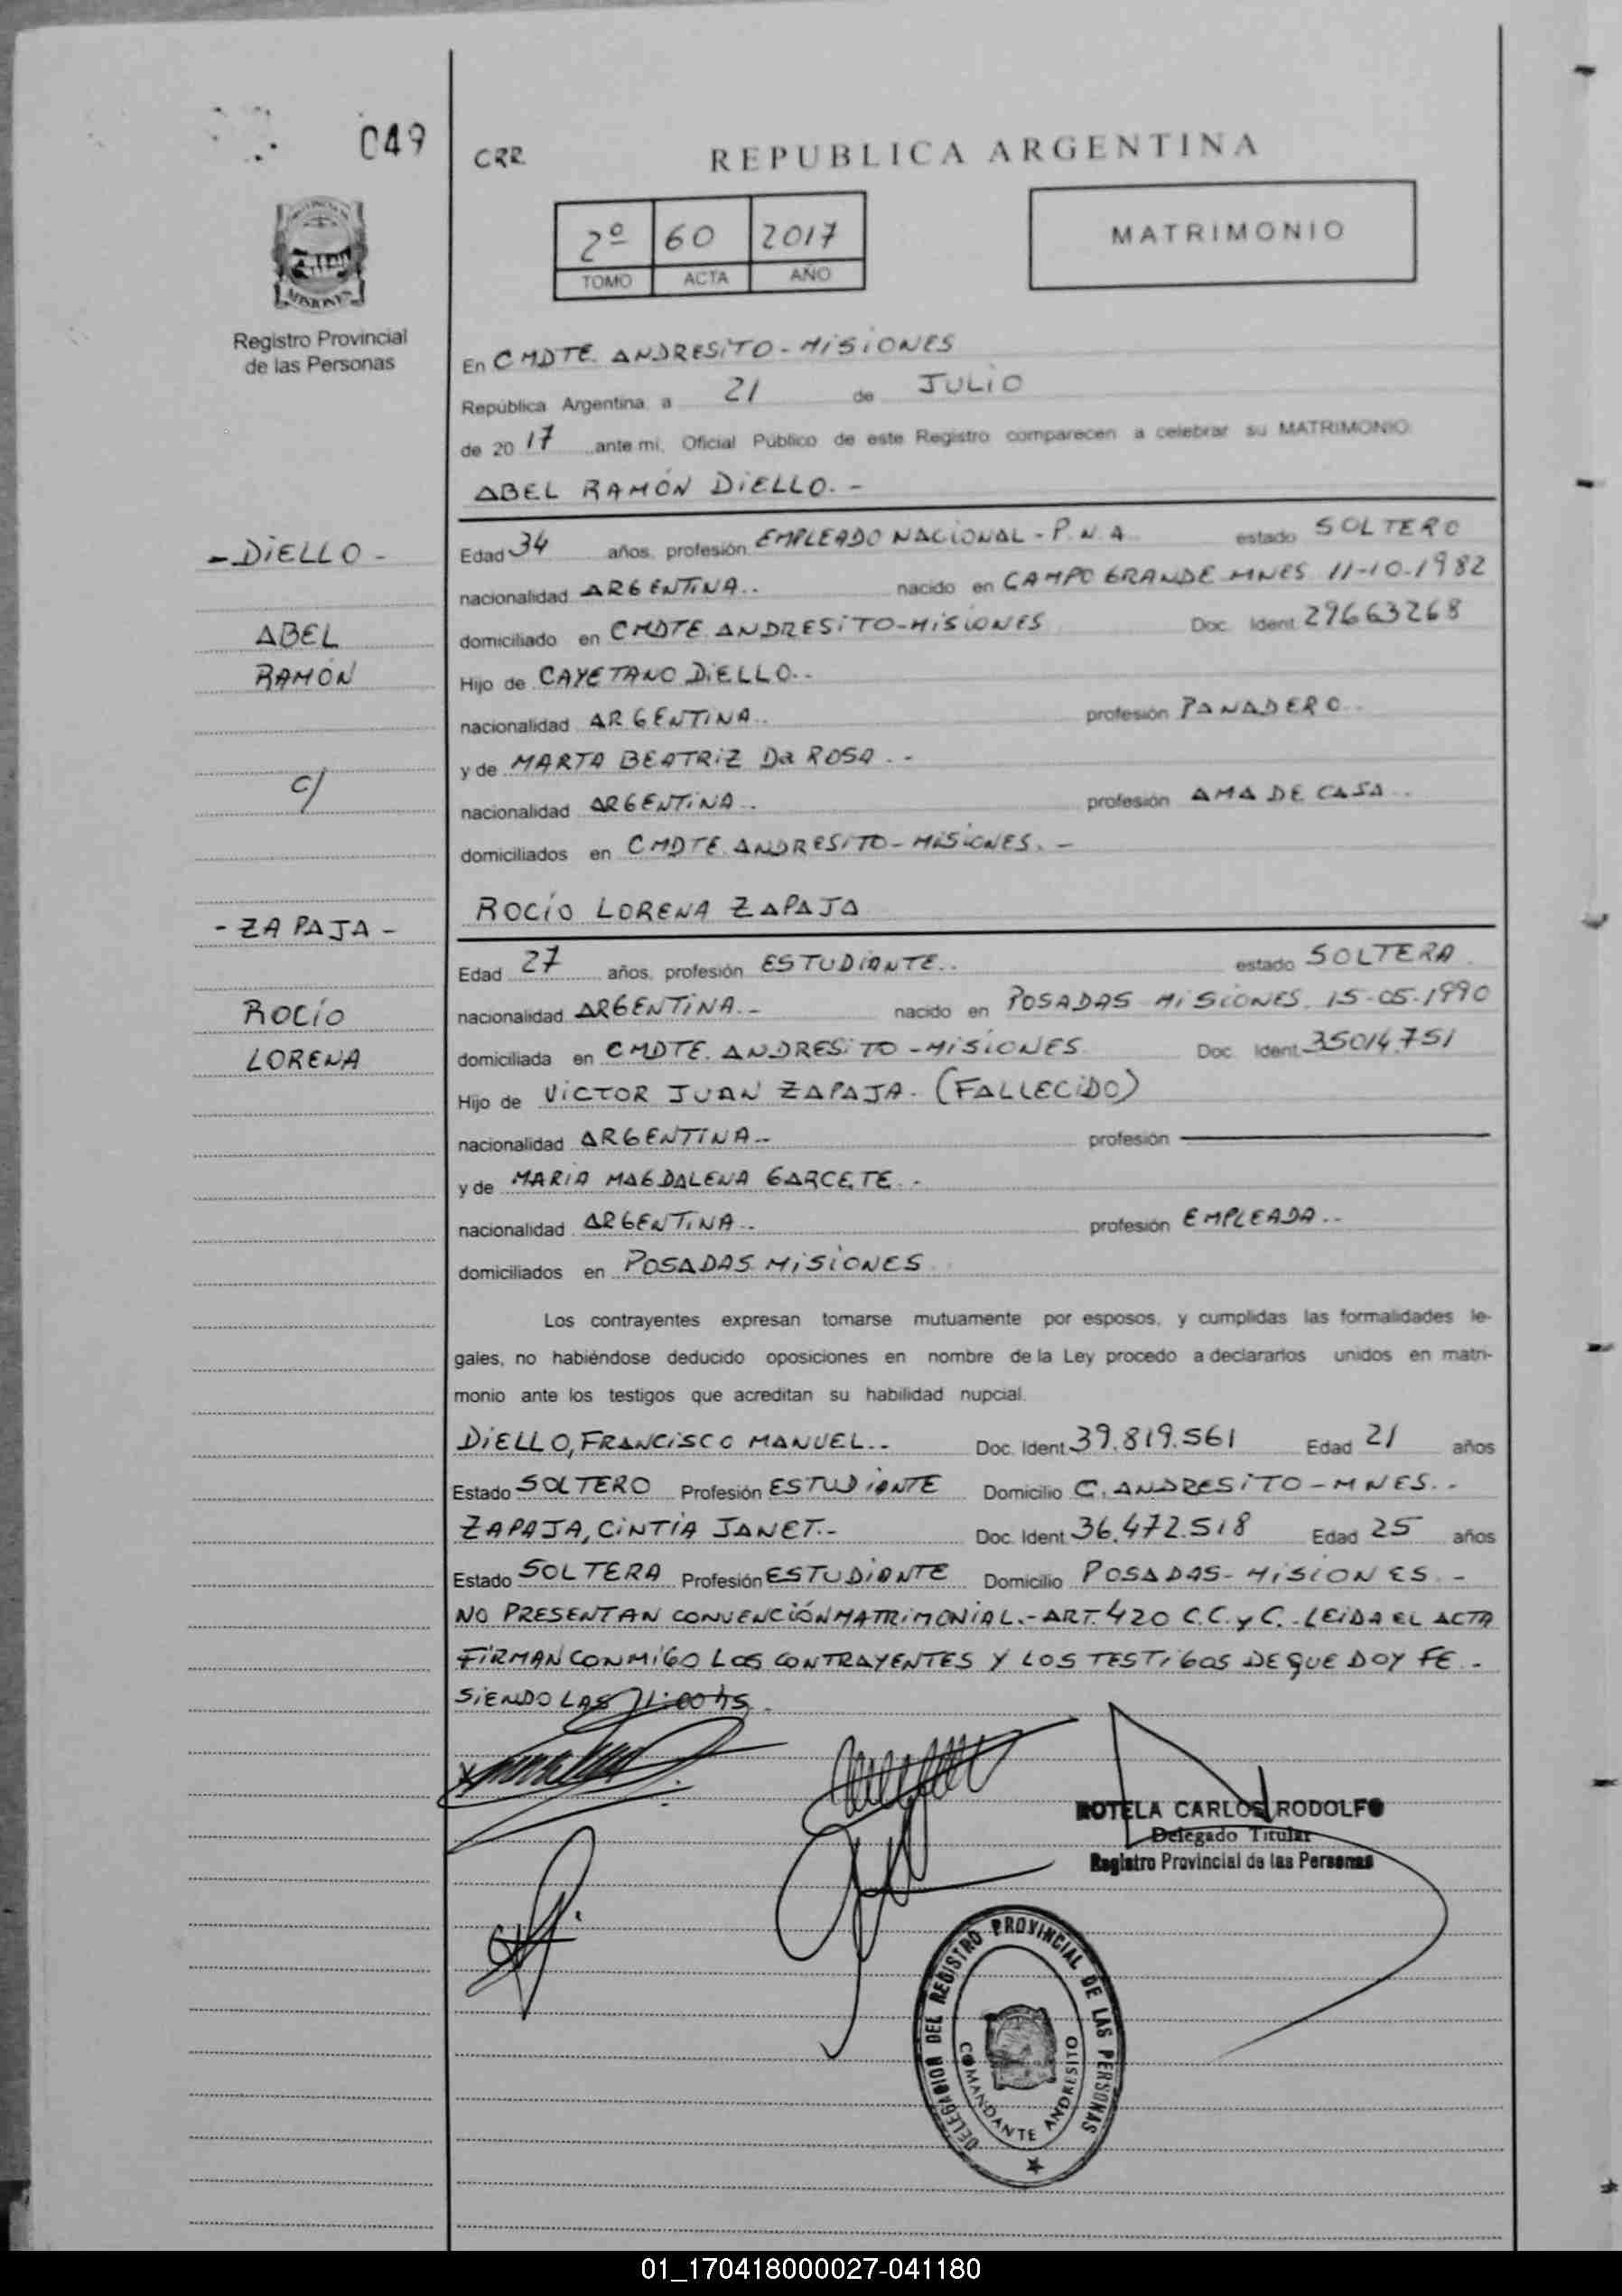 049
CRR
REPUBLICA ARGENTINA
2º 60 2017
TOMO ACTA AÑO
MATRIMONIO
MISIONES
Registro Provincial
de las Personas
En CMDTE. ANDRESiTO - MiSiONES
República Argentina, a 21 de JULiO
de 20 17 ante mi, Oficial Público de este Registro comparecen a celebrar su MATRIMONIO
ABEL RAMÓN DiELLO. -
- DiELLO -
Edad 34 años, profesión EMPLEADO NACiONAL - P.N.A. estado SOLTERO
nacionalidad ARGENTiNA.. nacido en CAMPO GRANDE MNES 11-10-1982
ABEL
domiciliado en CMDTE. ANDRESiTO-MiSiONES Doc. Ident. 29663268
RAMÓN
Hijo de CAYETANO DiELLO..
nacionalidad ARGENTiNA.. profesión PANADERO..
y de MARTA BEATRiZ Da ROSA . -
c/
nacionalidad ARGENTiNA.. profesión AMA DE CASA..
domiciliados en CMDTE. ANDRESiTO - MiSiONES. -
ROCíO LORENA ZAPAJA
- ZAPAJA -
Edad 27 años, profesión ESTUDiANTE.. estado SOLTERA
nacionalidad ARGENTiNA.- nacido en POSADAS MiSiONES. 15-05-1990
ROCíO
domiciliada en CMDTE. ANDRESiTO - MiSiONES Doc. Ident. 35014.751
LORENA
Hijo de ViCTOR JUAN ZAPAJA. (FALLECiDO)
nacionalidad ARGENTiNA.- profesión
y de MARiA MAGDALENA GARCETE.-
nacionalidad ARGENTiNA.. profesión EMPLEADA..
domiciliados en POSADAS MiSiONES
Los contrayentes expresan tomarse mutuamente por esposos, y cumplidas las formalidades le-
gales, no habiéndose deducido oposiciones en nombre de la Ley procedo a declararlos unidos en matri-
monio ante los testigos que acreditan su habilidad nupcial.
DiELLO, FRANCiSCO MANUEL.. Doc. Ident. 39.819.561 Edad 21 años
Estado SOLTERO Profesión ESTUDiANTE Domicilio C. ANDRESiTO - MNES..
ZAPAJA, CiNTíA JANET.- Doc. Ident. 36.472.518 Edad 25 años
Estado SOLTERA Profesión ESTUDiANTE Domicilio POSADAS - MiSiONES. -
NO PRESENTAN CONVENCiÓN MATRiMONiAL.- ART. 420 C.C. y C. - LEiDA EL ACTA
FiRMAN CONMiGO LOS CONTRAYENTES Y LOS TESTiGOS DE QUE DOY FE.-
SiENDO LAS 11:00 hs.
ROTELA CARLOS RODOLFO
Delegado Titular
Registro Provincial de las Personas
DELEGACION DEL REGISTRO PROVINCIAL DE LAS PERSONAS
COMANDANTE ANDRESITO
01_170418000027-041180